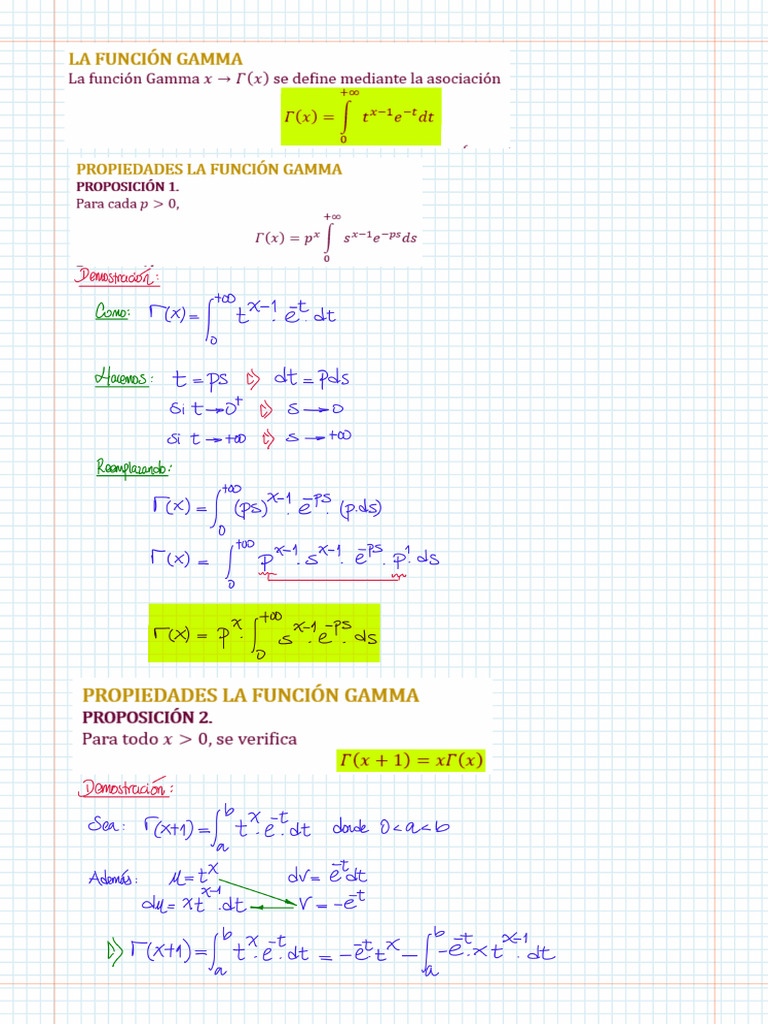 LA FUNCIÓN GAMMA
La función Gamma x → Γ(x) se define mediante la asociación
Γ(x) = ∫₀^{+∞} t^{x−1}e^{−t}dt
PROPIEDADES LA FUNCIÓN GAMMA
PROPOSICIÓN 1.
Para cada p > 0,
Γ(x) = p^x ∫₀^{+∞} s^{x−1}e^{−ps}ds
Demostración:
Como: Γ(x) = ∫₀^{+∞} t^{x−1}. e^{−t}. dt
Hacemos: t = ps ⇨ dt = pds
Si t → 0⁺ ⇨ s → 0
Si t → +∞ ⇨ s → +∞
Reemplazando:
Γ(x) = ∫₀^{+∞} (ps)^{x−1}. e^{−ps}. (p.ds)
Γ(x) = ∫₀^{+∞} p^{x−1}. s^{x−1}. e^{−ps}. p¹. ds
Γ(x) = p^x. ∫₀^{+∞} s^{x−1}. e^{−ps}. ds
PROPIEDADES LA FUNCIÓN GAMMA
PROPOSICIÓN 2.
Para todo x > 0, se verifica
Γ(x + 1) = xΓ(x)
Demostración:
Sea: Γ(x+1) = ∫_a^b t^x. e^{−t}. dt donde 0 < a < b
Además: u = t^x dv = e^{−t}dt
du = xt^{x−1}.dt v = −e^{−t}
⇨ Γ(x+1) = ∫_a^b t^x. e^{−t}. dt = −e^{−t}. t^x − ∫_a^b −e^{−t}. x t^{x−1}. dt